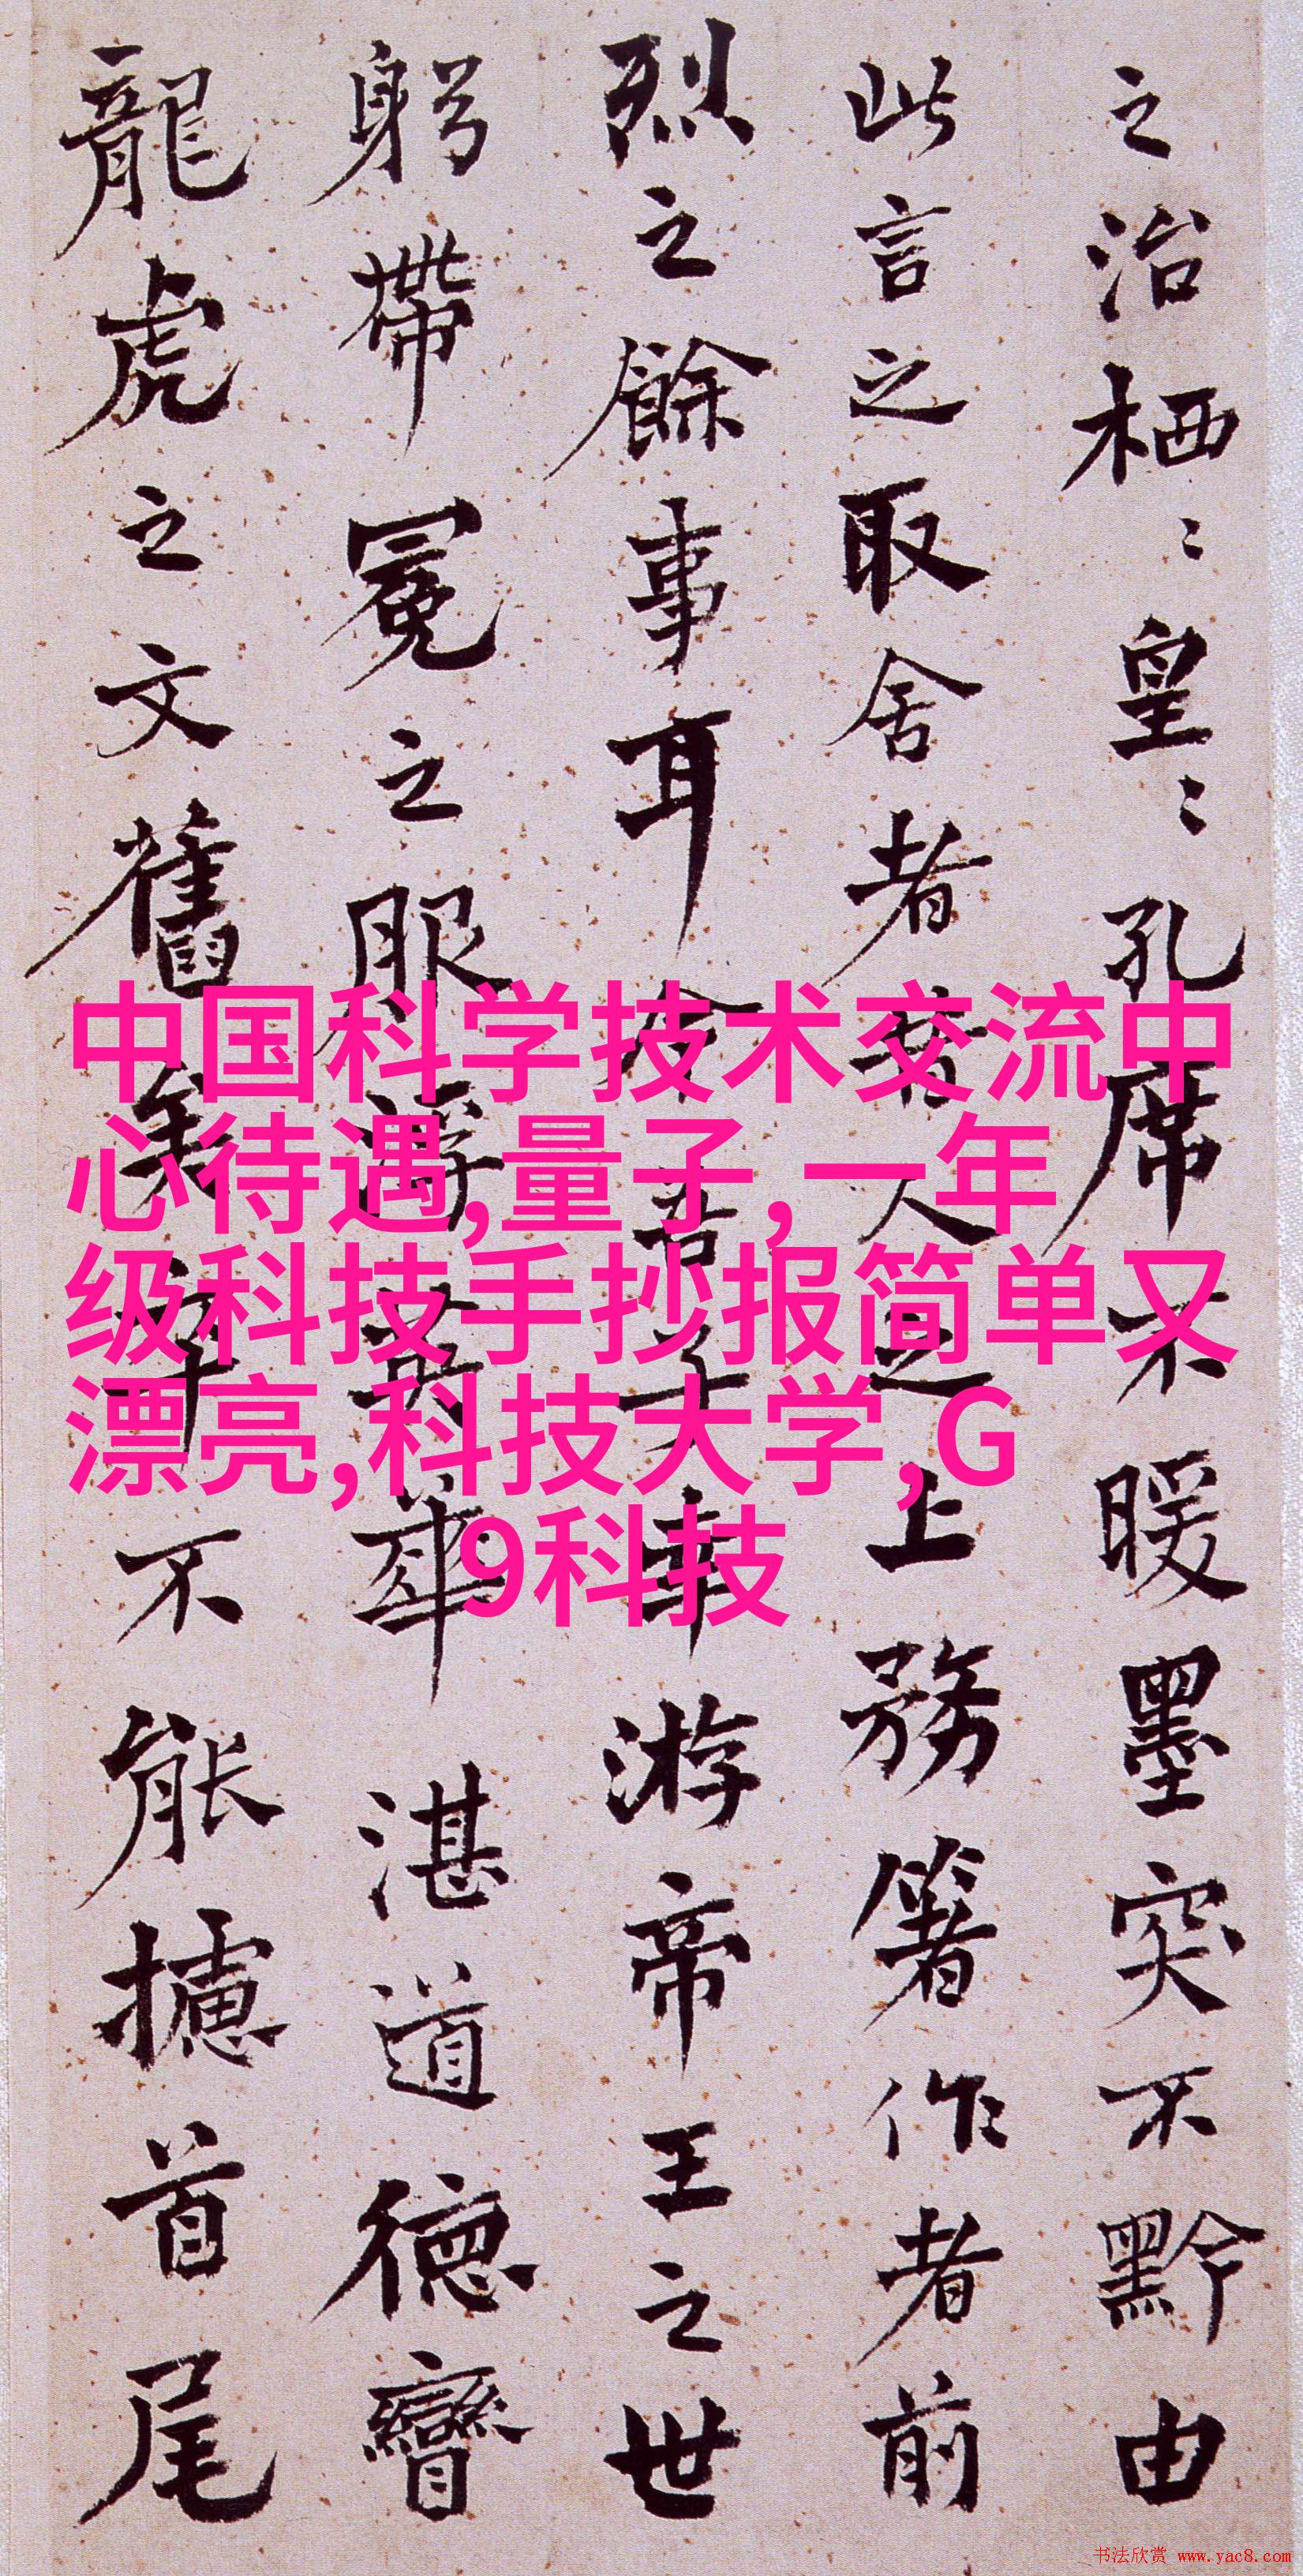 之治栖〻皇〻孔席不暖墨突不黔由
此言之取舍者昔人之上務箸作者前
烈之餘事耳今吾子幸游帝王之世
躬帶冕之服浮英華湛道德矕
龍虎之文舊矣卒不能攄首尾
中国科学技术交流中
心待遇,量子,一年
级科技手抄报简单又
漂亮,科技大学,G
9科技
书法欣赏 www.yac8.com